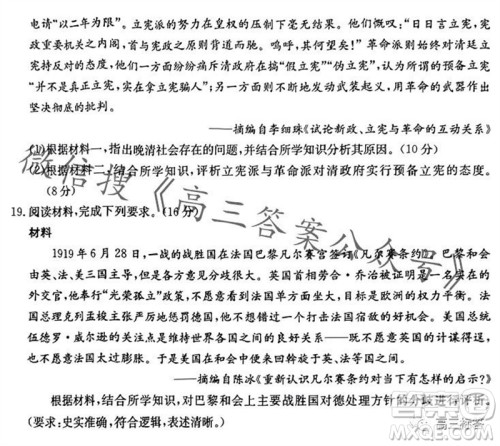 电请“以二年为限”。立宪派的努力在皇权的压制下毫无结果。他们慨叹:“日日言立宪,宪
政重要机关,首与宪政之原则背道而驰。呜呼,其何望矣!”革命派则始终对清廷立
宪持反对的态度,他们一方面纷纷痛斥清政府在搞“假立宪”“伪立宪”,认为所谓的预备立宪
“并不是真正立宪,实在拿立宪骗人”;另一方面则不断地发动武装起义,用革命的武器作出
坚决彻底的批判。
——摘编自李细珠《试论新政、立宪与革命的互动关系》
(1)根据材料一,指出晚清社会存在的问题,并结合所学知识分析其原因。(10分)
(2)根据材料二,结合所学知识,评析立宪派与革命派对清政府实行预备立宪的态度。
(8分)
19.阅读材料,完成下列要求。(16分)
材料
1919年6月28日,一战的战胜国在法国巴黎凡尔赛宫签订《凡尔赛条约》。巴黎和会
由英、法、美三国主导,但是各方意见分歧很大。英国首相劳合·乔治被证明是一名实在的
外交官,他奉行“光荣孤立”政策,不愿意看到法国单方面坐大,目标是欧洲的权力平衡。法
国总理克列孟梭主张严厉地惩罚德国,他不愿意看到德国有任何翻盘的好机会。美国总统
伍德罗·威尔逊的关注点是维持世界各强国之间的良好关系——既不愿意英国的计谋得
逞,也不愿意法国过于膨胀。于是美国在和会中便来回斡旋于英、法等国之间。
——摘编自陈冰《重新认识凡尔赛条约对当下有怎样的启示?》
根据材料,结合所学知识,对巴黎和会上主要战胜国对德处理方针的分歧进行评析。
(要求:史实准确,符合逻辑,表述清晰。)
微信搜《高三答案公众号》